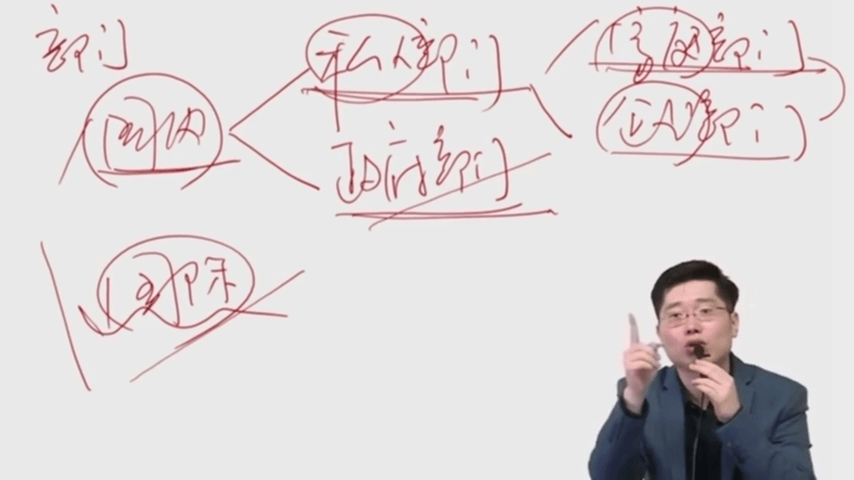 部门
国内
私人部门
政府部门
家庭部门
企业部门
国际